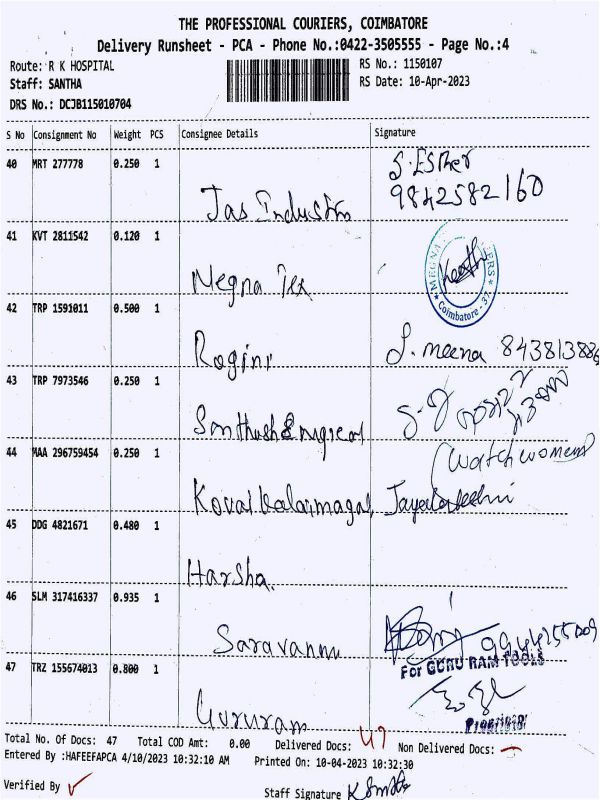 THE PROFESSIONAL COURIERS, COIMBATORE
Delivery Runsheet - PCA - Phone No.:0422-3505555 - Page No.:4
Route: R K HOSPITAL RS No.: 1150107
Staff: SANTHA RS Date: 10-Apr-2023
DRS No.: DCJB115010704
S No Consignment No Weight PCS Consignee Details Signature
40 MRT 277778 0.250 1 S. Esther
9842582160
Jas
41 KVT 2811542 0.120 1
MEGNA
Megna Tex
Coimbatore - 37.
42 TRP 1591011 0.500 1
Rogini
J. meena 843813886
43 TRP 7973546 0.250 1
44 MAA 296759454 0.250 1
(watchwomen)
Kovai kalaimagal Jayalakshmi
45 DDG 4821671 0.480 1
Harsha
46 SLM 317416337 0.935 1
Saravanan
For GURU RAM TOOLS
47 TRZ 155674013 0.800 1
Gururam
Proprietor
Total No. Of Docs: 47 Total COD Amt: 0.00 Delivered Docs: 47 Non Delivered Docs: -
Entered By :HAFEEFAPCA 4/10/2023 10:32:10 AM Printed On: 10-04-2023 10:32:30
Verified By ✓
Staff Signature